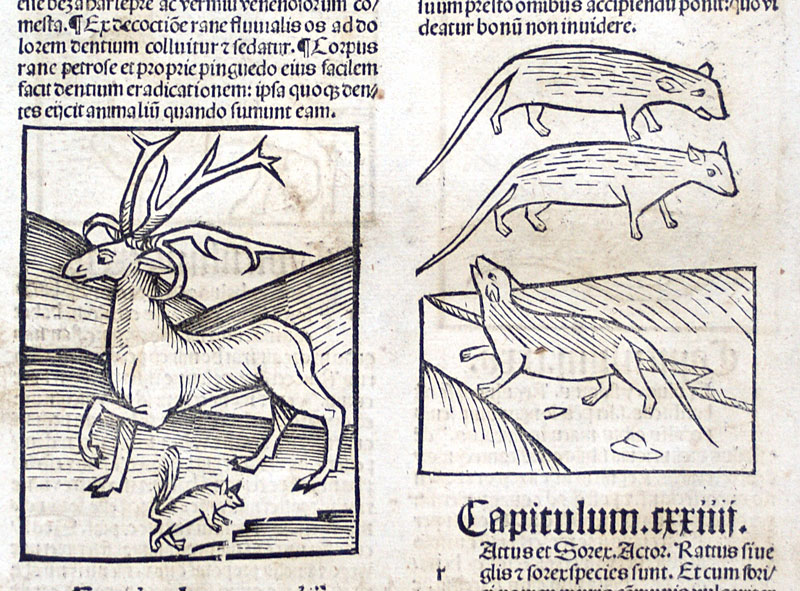 mesta. ¶ Ex decoctiõe rane fluuialis os ad do
lorem dentium colluitur ⁊ sedatur. ¶ Corpus
rane petrose et proprie pinguedo eius facilem
facit dentium eradicationem: ipsa quoqꝫ den/
tes eijcit animaliũ quando sumunt eam.
suum presto omnibus accipiendũ ponit: quo vi
deatur bonũ non inuidere.
Capitulum.cxxiiij.
Actus et Sorex. Actor. Rattus siue
r
glis ⁊ sorex species sunt. Et cum sori/